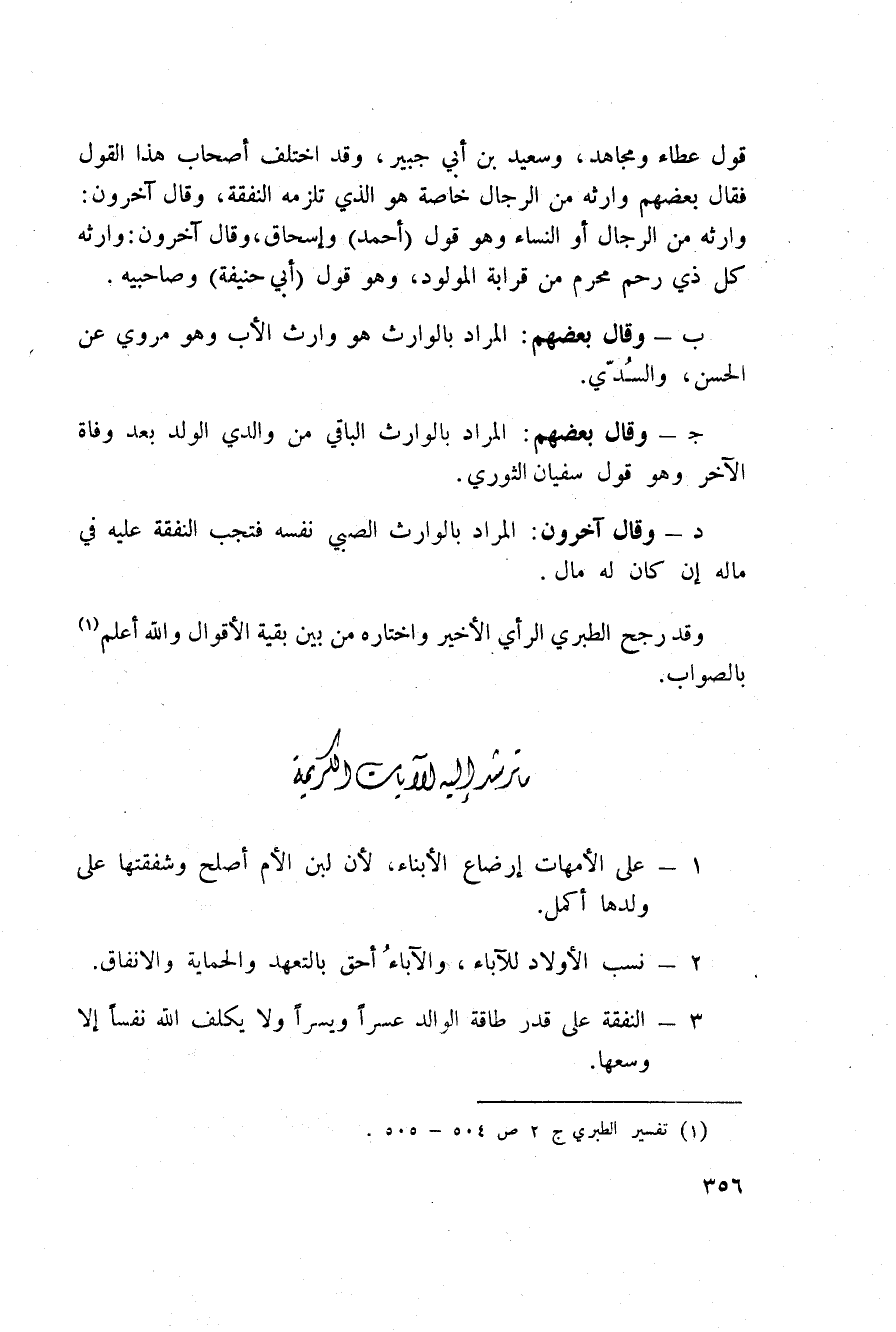 قول عطاء ومجاهد، وسعيد بن أبي جبير، وقد اختلف أصحاب هذا القول
فقال بعضهم وارثه من الرجال خاصة هو الذي تلزمه النفقة، وقال آخرون:
وارثه من الرجال أو النساء وهو قول (أحمد) وإسحاق، وقال آخرون: وارثه
كل ذي رحم محرم من قرابة المولود، وهو قول (أبي حنيفة) وصاحبيه .
ب – وقال بعضهم: المراد بالوارث هو وارث الأب وهو مروي عن
الحسن، والسُدّي.
جـ – وقال بعضهم: المراد بالوارث الباقي من والدي الولد بعد وفاة
الآخر وهو قول سفيان الثوري.
د – وقال آخرون: المراد بالوارث الصبي نفسه فتجب النفقة عليه في
ماله إن كان له مال .
وقد رجح الطبري الرأي الأخير واختاره من بين بقية الأقوال والله أعلم(١)
بالصواب.
ما ترشد إليه الآيات الكريمة
١ – على الأمهات إرضاع الأبناء، لأن لبن الأم أصلح وشفقتها على
ولدها أكمل.
٢ – نسب الأولاد للآباء ، والآباءُ أحق بالتعهد والحماية والانفاق.
٣ – النفقة على قدر طاقة الوالد عسراً ويسراً ولا يكلف الله نفساً إلا
وسعها.
(١) تفسير الطبري ج ٢ ص ٥٠٤ – ٥٠٥ .
٣٥٦